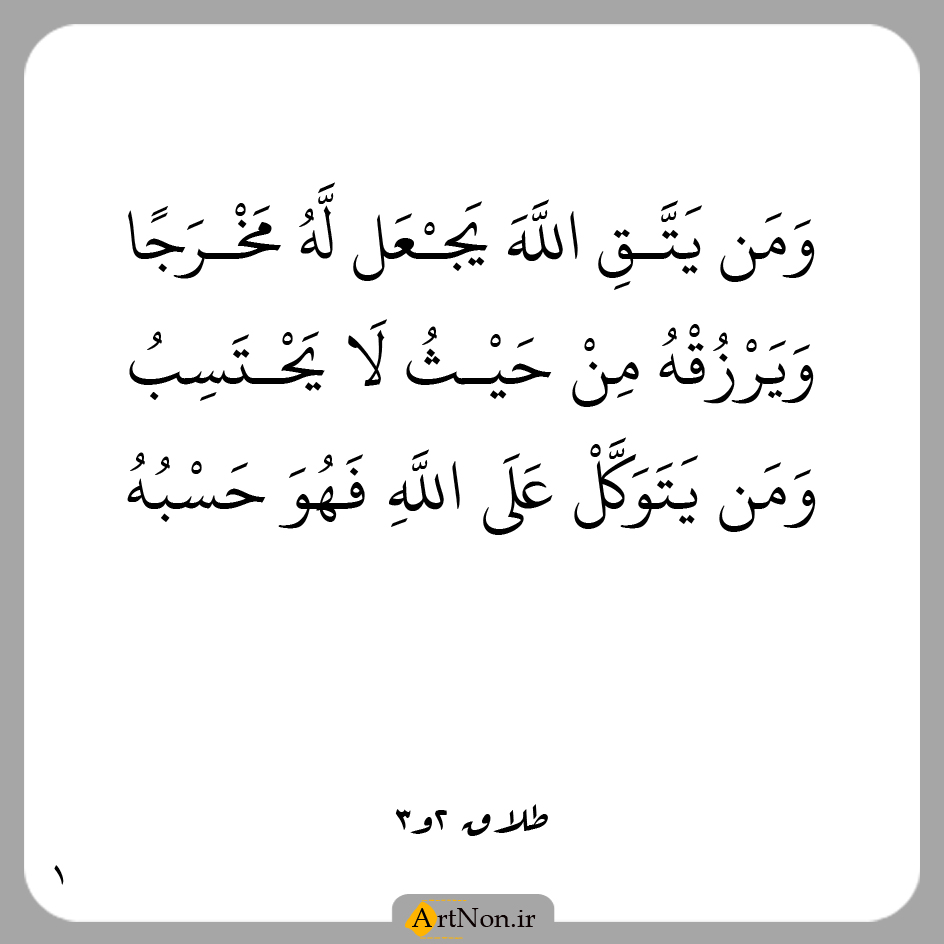 وَمَن يَتَّـقِ اللَّهَ يَجْـعَل لَّهُ مَخْـرَجًا
وَيَرْزُقْهُ مِنْ حَيْـثُ لَا يَحْـتَسِبُ
وَمَن يَتَوَكَّلْ عَلَى اللَّهِ فَهُوَ حَسْبُهُ
طلاق ۲و۳
۱
ArtNon.ir